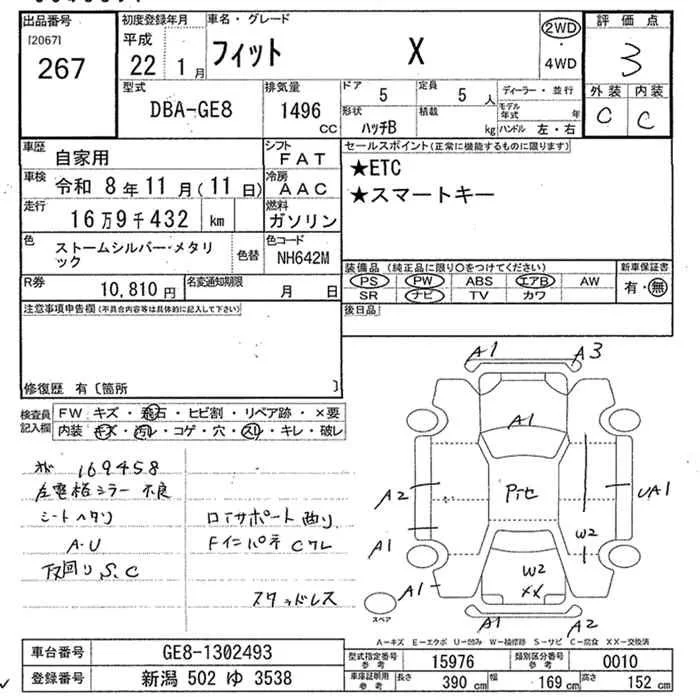 出品番号
[2067]
267
初度登録年月
平成
22 1月
車名・グレード
フィット X
2WD
・
4WD
評価点
3
外装 内装
C C
型式
DBA-GE8
排気量
1496
CC
ドア 5
定員 5人
形状 ハッチB
積載 kg
ディーラー・並行
モデル年式 年
ハンドル 左・右
車歴
自家用
シフト
FAT
車検
令和 8年11月(11日)
冷房
AAC
走行
16万9千432 km
燃料
ガソリン
色
ストームシルバー・メタリック
色替
色コード
NH642M
R券
10,810円
名変通知期限
月 日
セールスポイント(正常に機能するものに限ります)
★ETC
★スマートキー
装備品(純正品に限り○をつけてください)
PS PW ABS エアB AW
SR ナビ TV カワ
新車保証書
有・無
後日品
注意事項申告欄(不具合内容等は具体的に記入して下さい)
修復歴 有〔箇所 〕
検査員記入欄
FW キズ・飛石・ヒビ割・リペア跡・×要
内装 キズ・汚れ・コゲ・穴・スリ・キレ・破レ
169458
左電格ミラー不良
シートヘタリ
A・U
下回りS、C
ロアサポート曲り
Fインパネ Cワレ
スタッドレス
A1 A3
A1
A2 Piセ UA1
A1 W2
A1 W2
XX
A1 A2
スペア
A-キズ E-エクボ U-凹み W-補修跡 S-サビ C-腐食 XX-交換済
車台番号
GE8-1302493
登録番号
新潟 502 ゆ 3538
型式指定番号
参考
15976
類別区分番号
参考
0010
車庫証明用
参考
長さ 390cm
幅 169cm
高さ 152cm